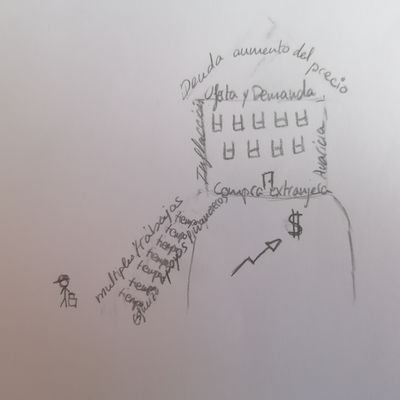 Deuda aumento del precio
Oferta y Demanda
Inflación
Avaricia
Compra Extranjera
multiples trabajos
tiempo
tiempo
tiempo
tiempo
tiempo
tiempo
tiempo
$